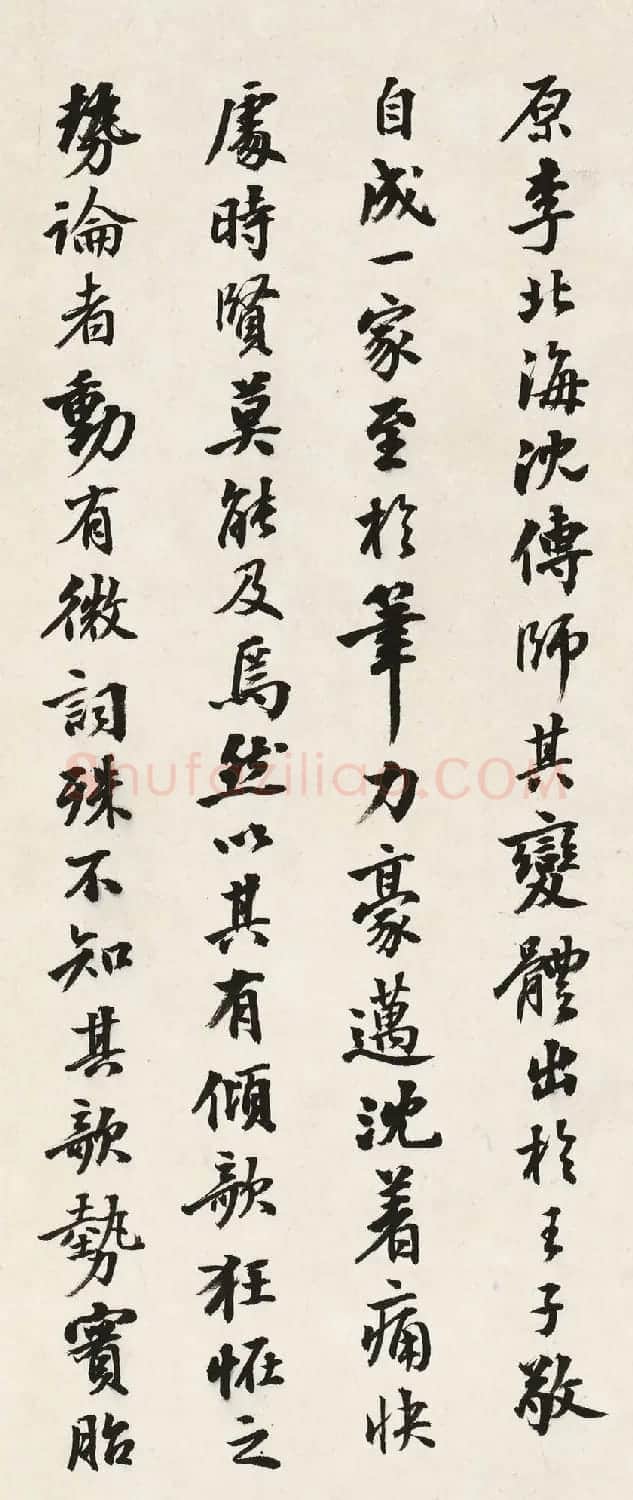 原李北海沈傳師其變體出於王子敬
自成一家至於筆力豪邁沈着痛快
處時賢莫能及焉然以其有傾欹狂怪之
勢論者動有微詞殊不知其欹勢實胎
Shufaziliao.COM